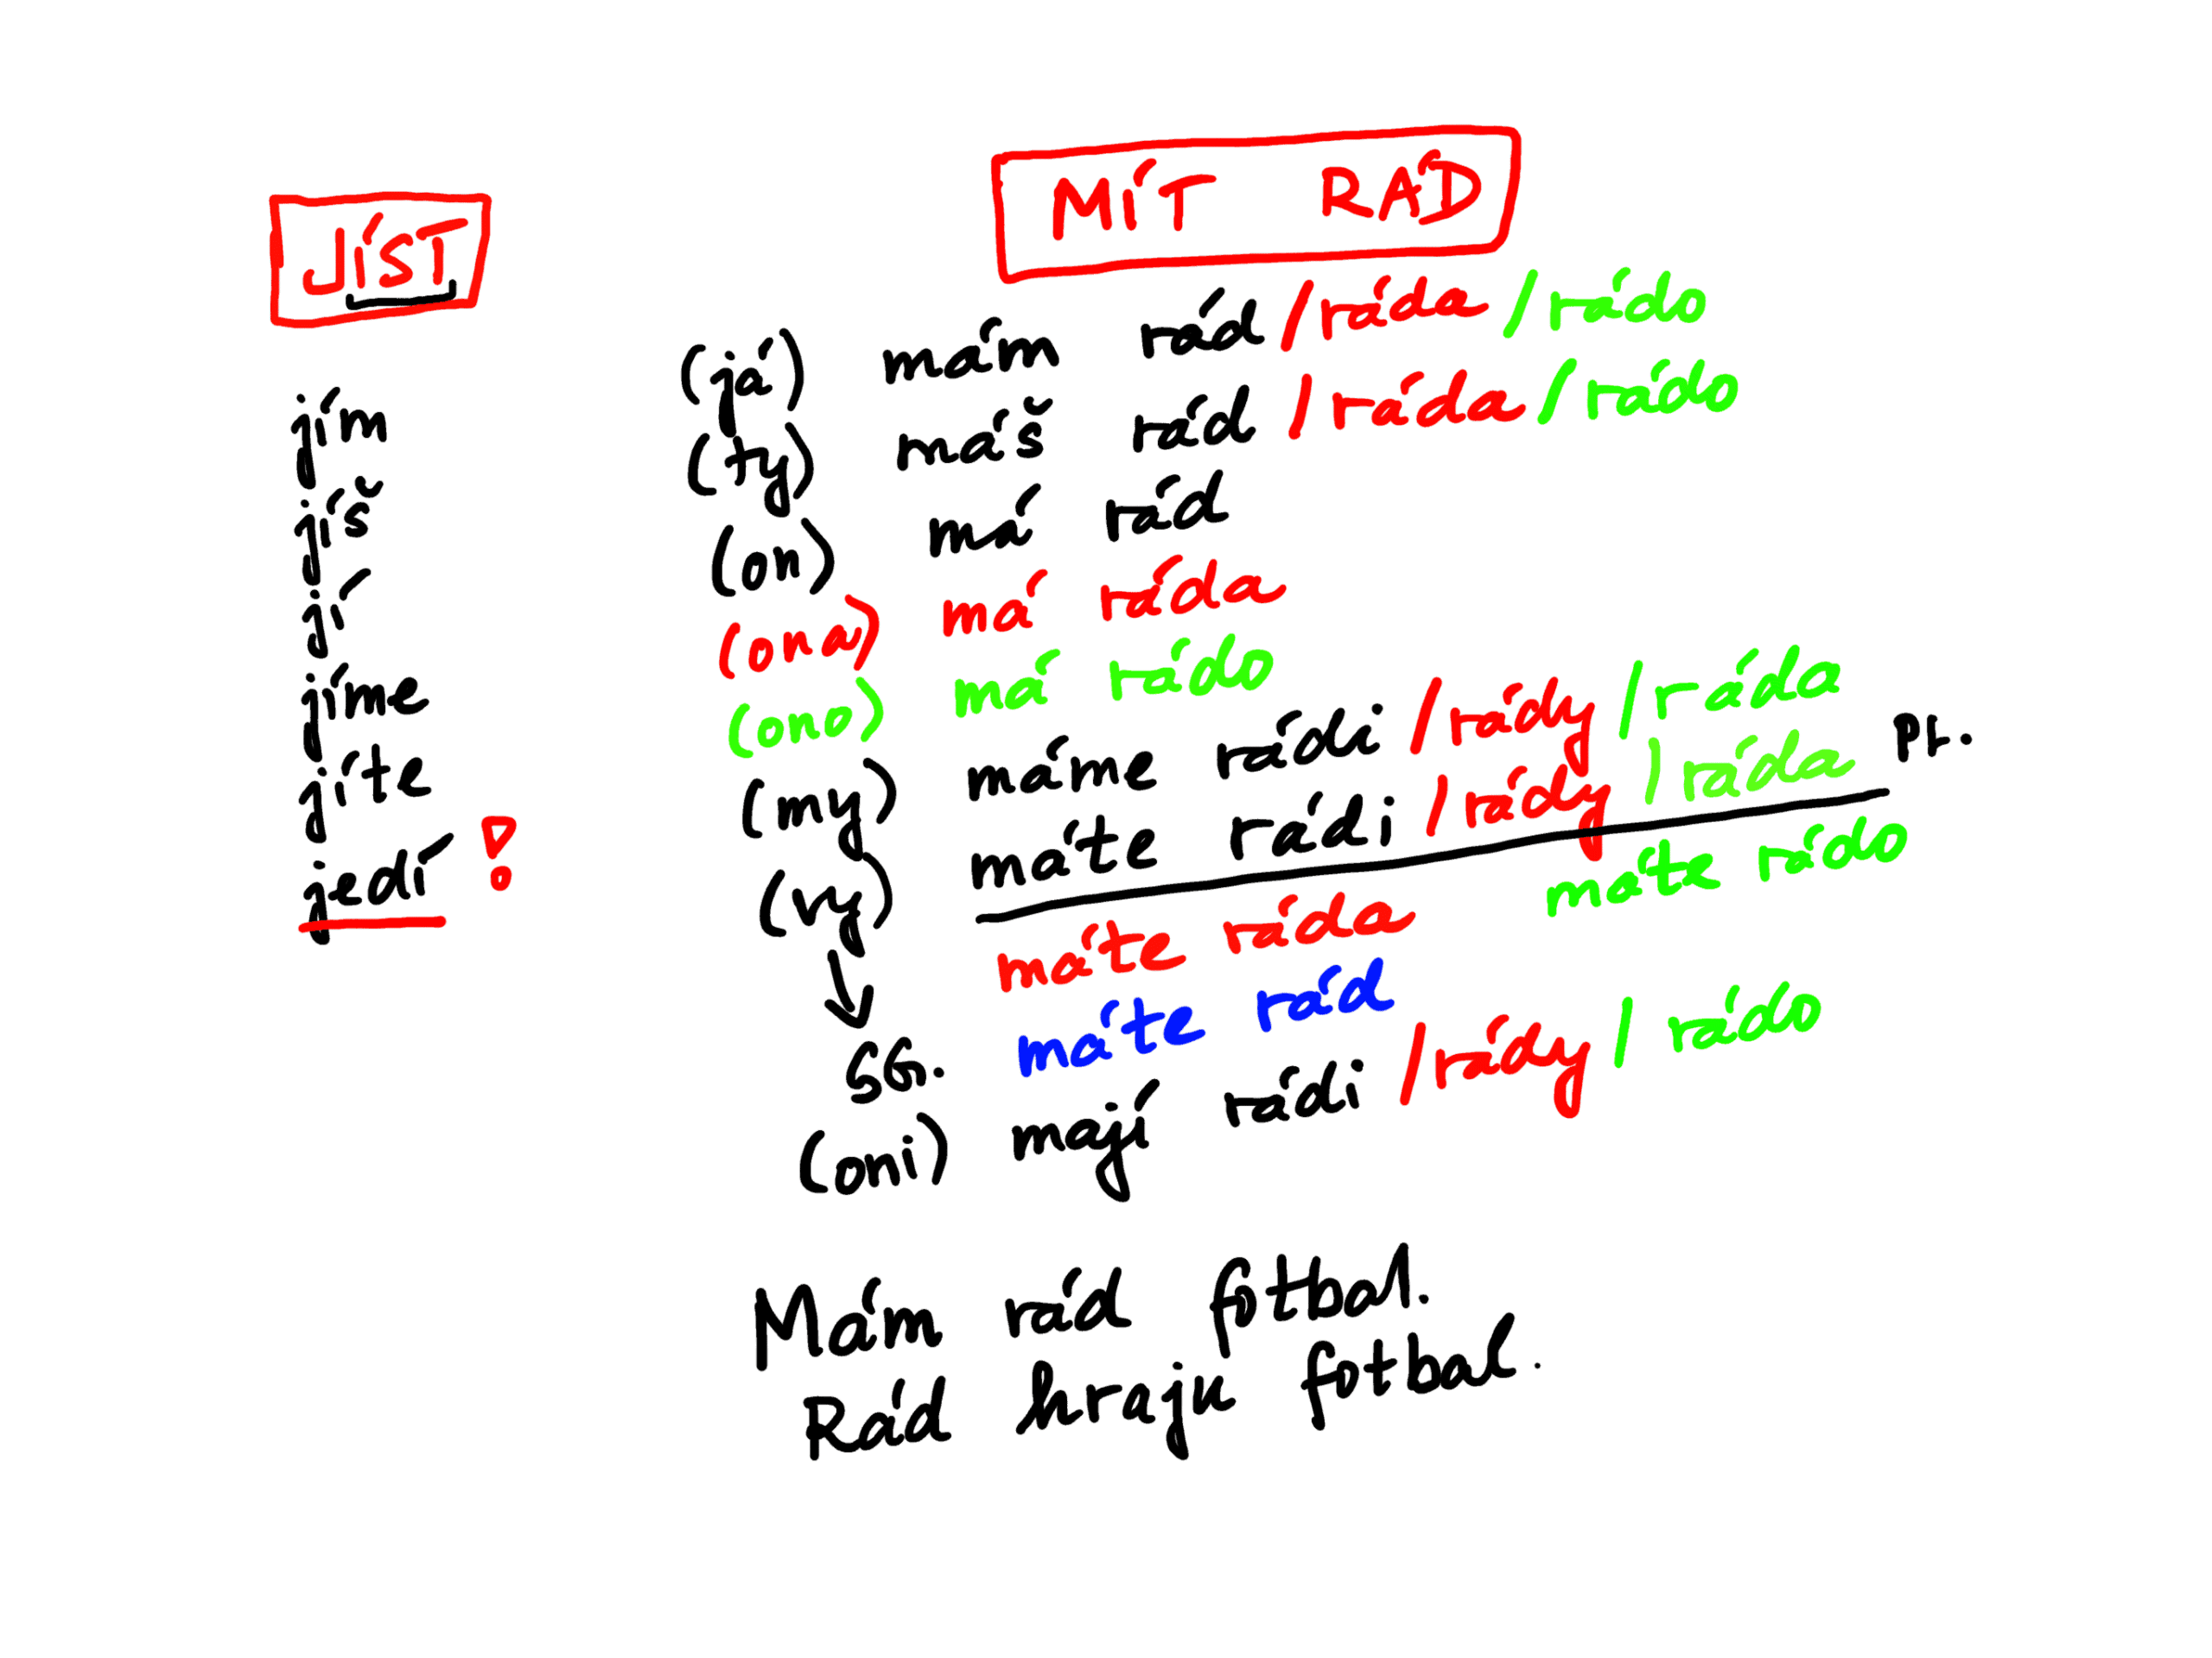 JÍST
jím
jíš
jí
jíme
jíte
jedí !
MÍT RÁD
(já) mám rád /ráda /rádo
(ty) máš rád /ráda /rádo
(on) má rád
(ona) má ráda
(ono) má rádo
(my) máme rádi /rády /ráda
(vy) máte rádi /rády /ráda Pl.
máte ráda máte rádo
SG. máte rád
(oni) mají rádi /rády / rádo
Mám rád fotbal.
Rád hraju fotbal.